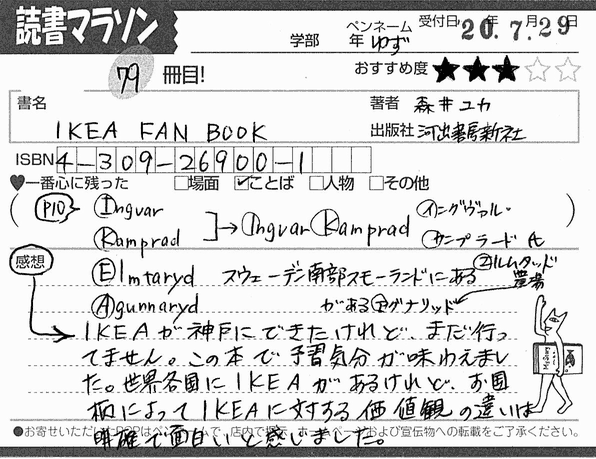 読書マラソン
学部 年 ペンネーム ゆず 受付日 20.年7.月29日
79 冊目! おすすめ度 ★★★☆☆
書名 著者 森井ユカ
IKEA FAN BOOK 出版社 河出書房新社
ISBN 4-309-26900-1
♥一番心に残った □場面 ☑ことば □人物 □その他
(P10 Ingvar
Kamprad → Ingvar Kamprad イングヴァル・カンプラード氏)
感想
Elmtaryd スウェーデン南部スモーランドにあるエルムタリッド農場
Agunnaryd があるアグナリッド
IKEAが神戸にできたけれど、まだ行っ
てません。この本で予習気分が味わえまし
た。世界各国にIKEAがあるけれど、お国
柄によってIKEAに対する価値観の違いは
明確で面白いと感じました。
●お寄せいただいたPOPはペンネームで、店内で掲示、ホームページおよび宣伝物への転載をご了承ください。